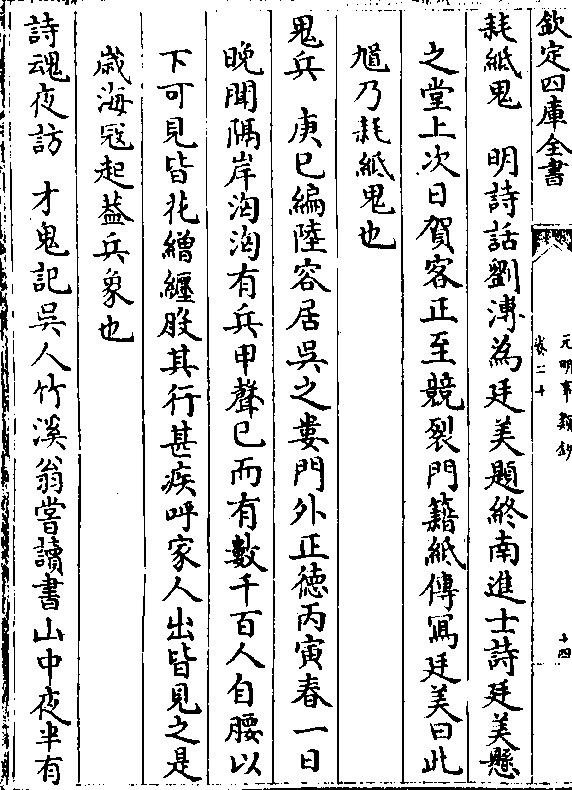 欽定四庫全書
元明事類鈔
卷二十
十四
耗紙鬼　明詩話劉溥為廷美題終南進士詩廷美懸
之堂上次日賀客正至競裂門籍紙傳寫廷美曰此
馗乃耗紙鬼也
鬼兵　庚巳編陸容居吳之婁門外正德丙寅春一日
晚聞隔岸洶洶有兵甲聲已而有數千百人自腰以
下可見皆花繒纏股其行甚疾呼家人出皆見之是
歲海寇起葢兵象也
詩魂夜訪　才鬼記吳人竹溪翁嘗讀書山中夜半有